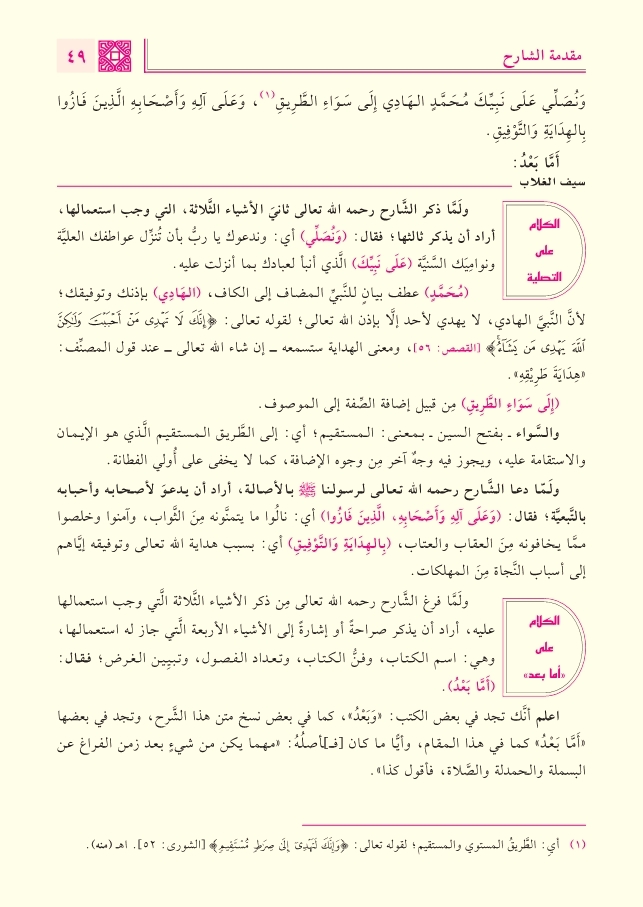 مقدمة الشارح
٤٩
وَنُصَلِّي عَلَى نَبِيِّكَ مُحَمَّدٍ الهَادِي إِلَى سَوَاءِ الطَّرِيقِ(١)، وَعَلَى آلِهِ وَأَصْحَابِهِ الَّذِينَ فَازُوا
بِالهِدَايَةِ وَالتَّوْفِيقِ.
أَمَّا بَعْدُ:
سيف الغلاب
الكلام
على
التصلية
ولَمَّا ذكر الشَّارح رحمه الله تعالى ثانيَ الأشياء الثَّلاثة، التي وجب استعمالها،
أراد أن يذكر ثالثها؛ فقال: (وَنُصَلِّي) أي: وندعوك يا ربُّ بأن تُنزِّل عواطفك العليَّة
ونوامِيَك السَّنِيَّة (عَلَى نَبِيِّكَ) الَّذي أنبأ لعبادك بما أنزلت عليه.
(مُحَمَّدٍ) عطف بيانٍ للنَّبيِّ المضاف إلى الكاف، (الهَادِي) بإذنك وتوفيقك؛
لأنَّ النَّبيَّ الهادي، لا يهدي لأحد إلَّا بإذن الله تعالى؛ لقوله تعالى: ﴿إِنَّكَ لَا تَهْدِى مَنْ أَحْبَبْتَ وَلَٰكِنَّ
ٱللَّهَ يَهْدِى مَن يَشَآءُ﴾ [القصص: ٥٦]، ومعنى الهداية ستسمعه ــ إن شاء الله تعالى ــ عند قول المصنِّف:
«هِدَايَةَ طَرِيْقِهِ».
(إِلَى سَوَاءِ الطَّرِيقِ) مِن قبيل إضافة الصِّفة إلى الموصوف.
والسَّواء ـ بفتح السين ـ بمعنى: المستقيم؛ أي: إلى الطَّريق المستقيم الَّذي هو الإيمان
والاستقامة عليه، ويجوز فيه وجهٌ آخر مِن وجوه الإضافة، كما لا يخفى على أُولي الفطانة.
ولَمّا دعا الشَّارح رحمه الله تعالى لرسولنا ﷺ بالأصالة، أراد أن يدعوَ لأصحابه وأحبابه
بالتَّبعيَّة؛ فقال: (وَعَلَى آلِهِ وَأَصْحَابِهِ، الَّذِينَ فَازُوا) أي: نالُوا ما يتمنَّونه مِنَ الثَّواب، وآمنوا وخلصوا
ممَّا يخافونه مِنَ العقاب والعتاب، (بِالهِدَايَةِ وَالتَّوْفِيقِ) أي: بسبب هداية الله تعالى وتوفيقه إيَّاهم
إلى أسباب النَّجاة مِنَ المهلكات.
الكلام
على
«أما بعد»
ولَمَّا فرغ الشَّارح رحمه الله تعالى مِن ذكر الأشياء الثَّلاثة الَّتي وجب استعمالها
عليه، أراد أن يذكر صراحةً أو إشارةً إلى الأشياء الأربعة الَّتي جاز له استعمالها،
وهي: اسم الكتاب، وفنُّ الكتاب، وتعداد الفصول، وتبيِين الغرض؛ فقال:
(أَمَّا بَعْدُ).
اعلم أنَّك تجد في بعض الكتب: «وَبَعْدُ»، كما في بعض نسخ متن هذا الشَّرح، وتجد في بعضها
«أَمَّا بَعْدُ» كما في هذا المقام، وأيًّا ما كان [فـ]أصلُهُ: «مهما يكن من شيءٍ بعد زمن الفراغ عن
البسملة والحمدلة والصَّلاة، فأقول كذا».
(١) أي: الطَّريقُ المستوي والمستقيم؛ لقوله تعالى: ﴿وَإِنَّكَ لَتَهْدِىٓ إِلَىٰ صِرَٰطٍ مُّسْتَقِيمٍ﴾ [الشورى: ٥٢]. اهـ (منه).